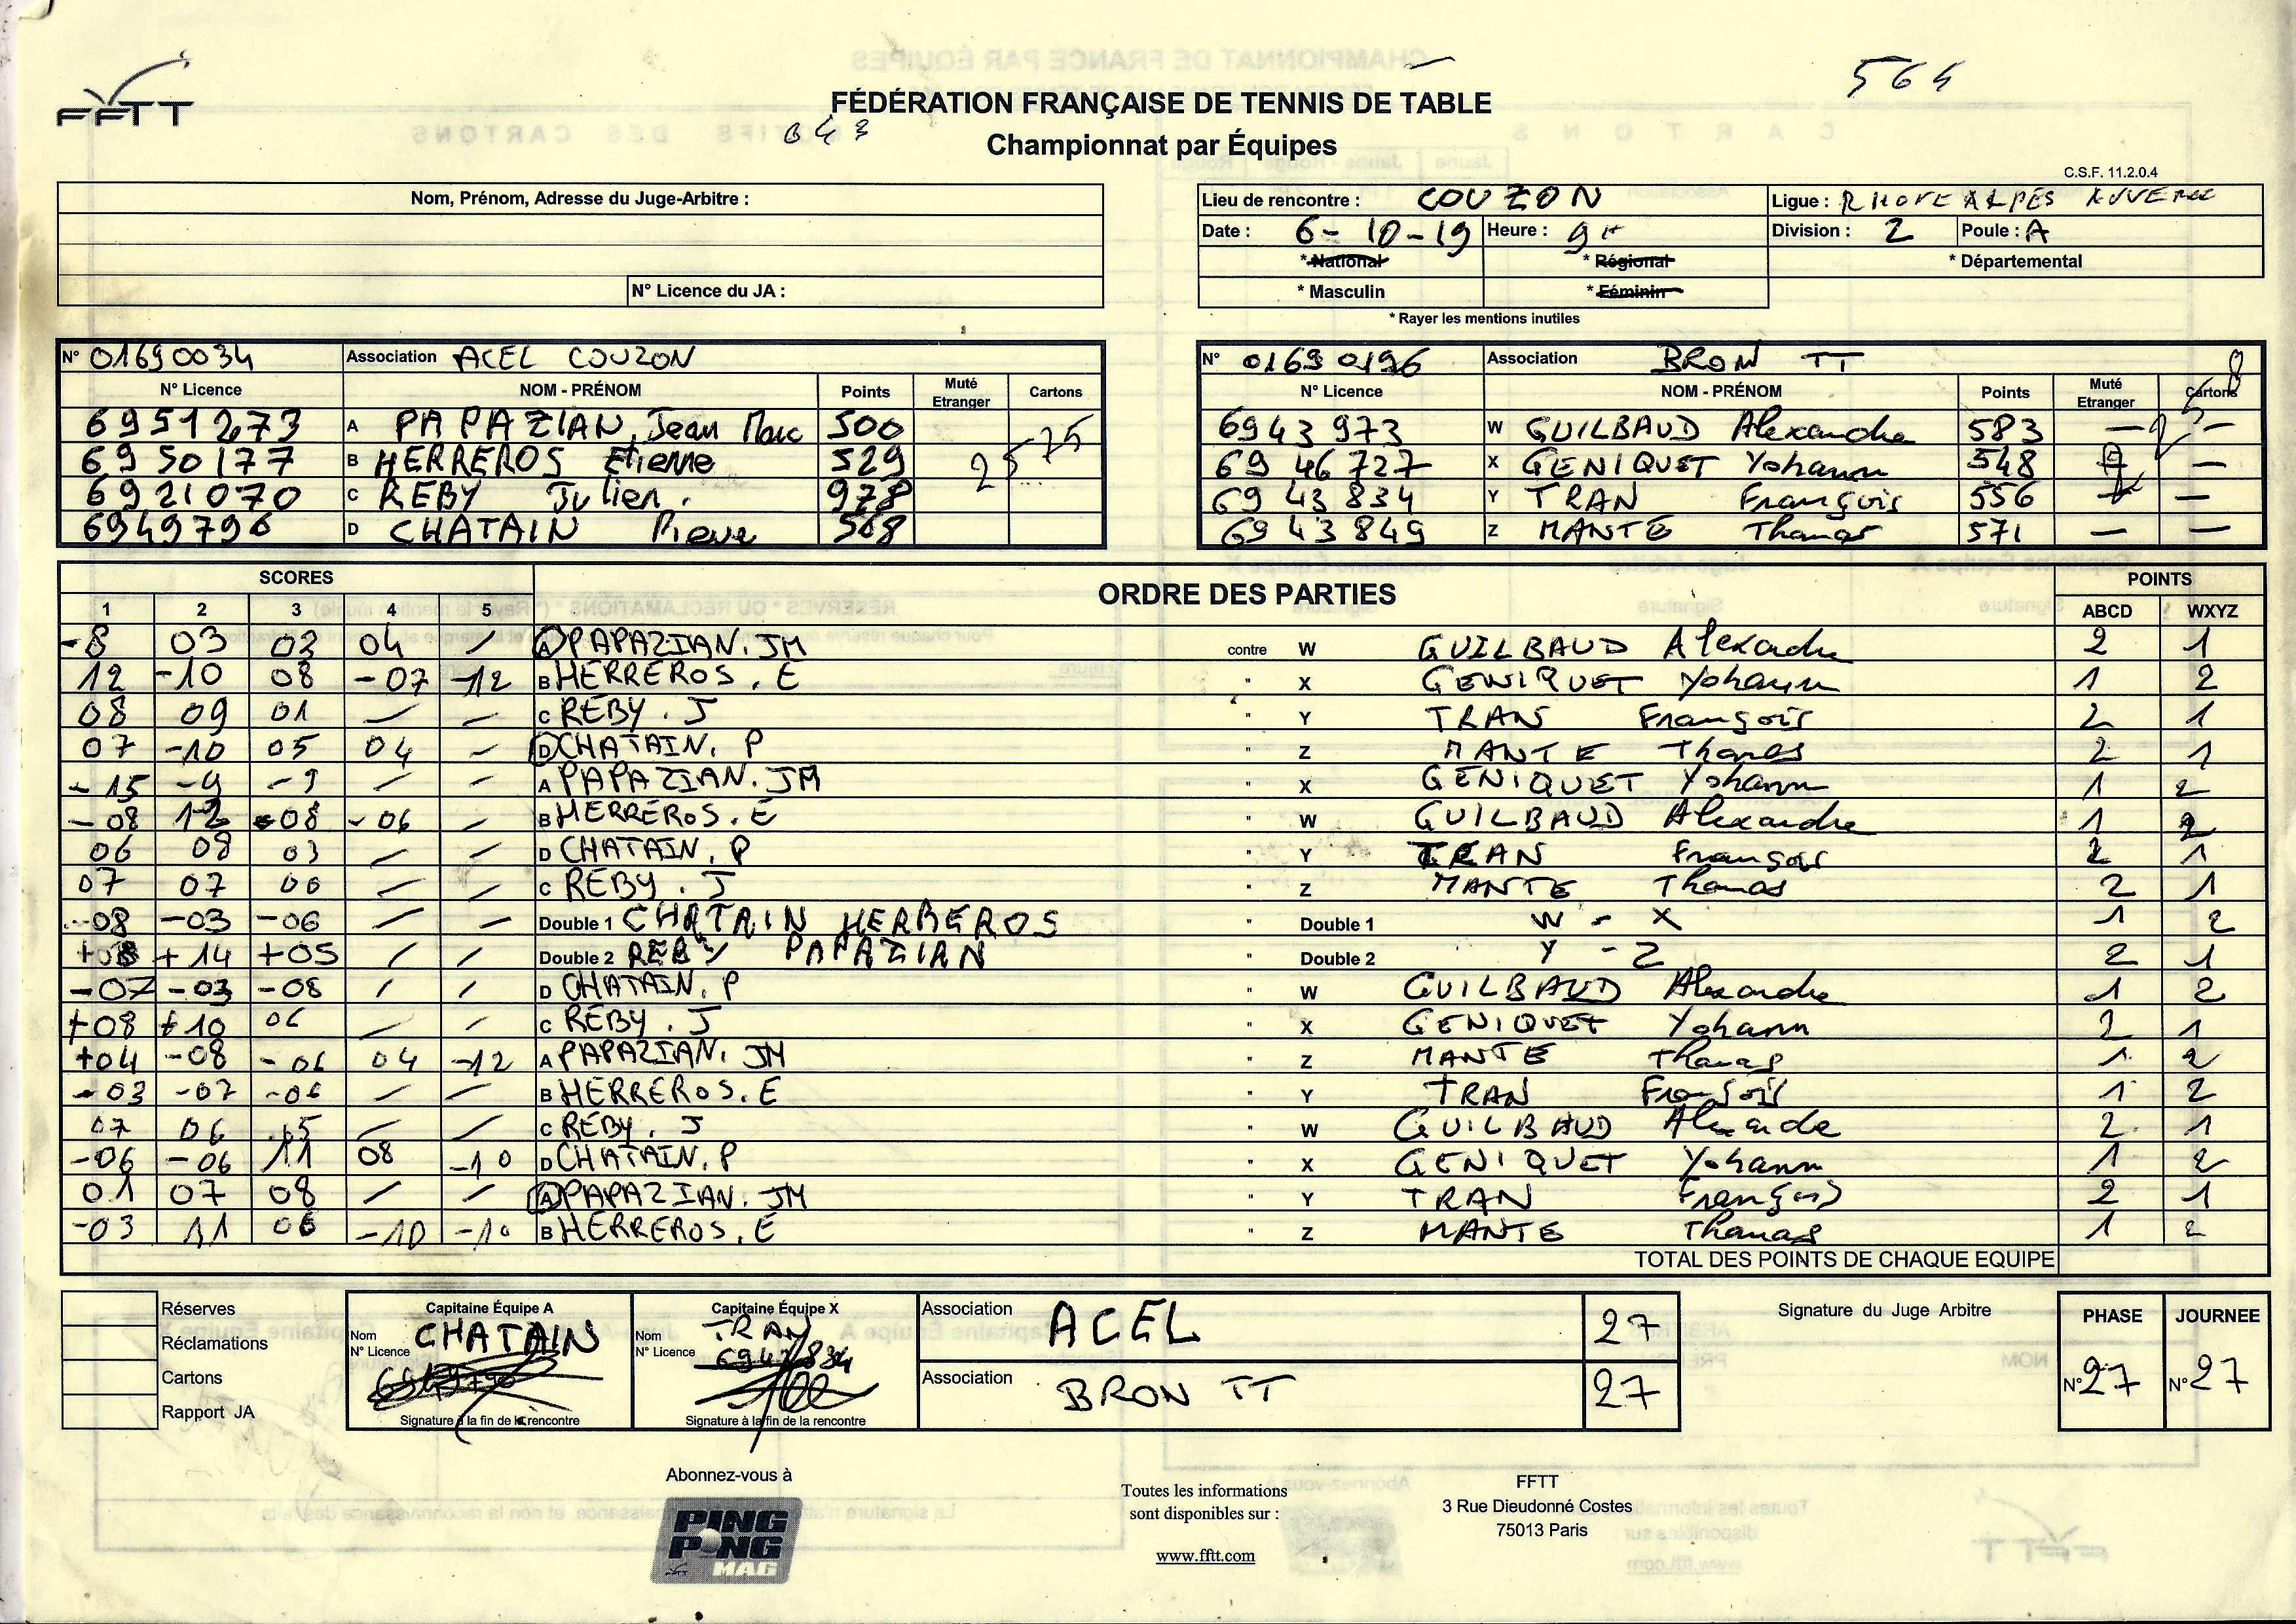 FFTT
564
FÉDÉRATION FRANÇAISE DE TENNIS DE TABLE
Championnat par Équipes
C.S.F. 11.2.0.4
Nom, Prénom, Adresse du Juge-Arbitre :
N° Licence du JA :
Lieu de rencontre : COUZON Ligue : RHONE ALPES
Date : 6-10-19 Heure : 9H Division : 2 Poule : A
* National * Régional * Départemental
* Masculin * Féminin
* Rayer les mentions inutiles
N° 01690034 Association ACEL COUZON
N° Licence NOM - PRÉNOM Points Muté Etranger Cartons
6951273 A PAPAZIAN Jean Marc 500
6950177 B HERREROS Etienne 529
6921070 C REBY Julien. 978
6949796 D CHATAIN Pierre 568
N° 01690196 Association BRON TT
N° Licence NOM - PRÉNOM Points Muté Etranger Cartons
6943973 W GUILBAUD Alexandre 583 — —
6946727 X GENIQUET Yohann 548 —
6943834 Y TRAN François 556 —
6943849 Z MANTE Thomas 571 — —
SCORES ORDRE DES PARTIES POINTS
1 2 3 4 5 ABCD WXYZ
-8 03 03 04 / A PAPAZIAN. JM contre W GUILBAUD Alexandre 2 1
12 -10 08 -07 -12 B HERREROS. E " X GENIQUET Yohann 1 2
08 09 01 / / C REBY. J " Y TRAN François 2 1
07 -10 05 04 / D CHATAIN. P " Z MANTE Thomas 2 1
-15 -9 -9 / / A PAPAZIAN. JM " X GENIQUET Yohann 1 2
-08 12 -08 -06 / B HERREROS. E " W GUILBAUD Alexandre 1 2
06 08 03 / / D CHATAIN. P " Y TRAN François 2 1
07 07 06 / / C REBY. J " Z MANTE Thomas 2 1
-08 -03 -06 / / Double 1 CHATAIN HERREROS " Double 1 W - X 1 2
+08 +14 +05 / / Double 2 REBY PAPAZIAN " Double 2 Y - Z 2 1
-07 -03 -08 / / D CHATAIN. P " W GUILBAUD Alexandre 1 2
+08 +10 06 / / C REBY. J " X GENIQUET Yohann 2 1
+04 -08 -06 04 -12 A PAPAZIAN. JM " Z MANTE Thomas 1 2
-03 -07 -06 / / B HERREROS. E " Y TRAN François 1 2
07 06 / / C REBY. J " W GUILBAUD Alexandre 2 1
-06 -06 11 08 -10 D CHATAIN. P " X GENIQUET Yohann 1 2
01 07 08 / / A PAPAZIAN. JM " Y TRAN François 2 1
-03 11 06 -10 -10 B HERREROS. E " Z MANTE Thomas 1 2
TOTAL DES POINTS DE CHAQUE EQUIPE
Réserves
Réclamations
Cartons
Rapport JA
Capitaine Équipe A
Nom CHATAIN
N° Licence
Signature à la fin de la rencontre
Capitaine Équipe X
Nom TRAN
N° Licence
Signature à la fin de la rencontre
Association ACEL 27
Association BRON TT 27
Signature du Juge Arbitre
PHASE JOURNEE
N° 27 N° 27
Abonnez-vous à
PING PONG MAG
Toutes les informations
sont disponibles sur :
www.fftt.com
FFTT
3 Rue Dieudonné Costes
75013 Paris